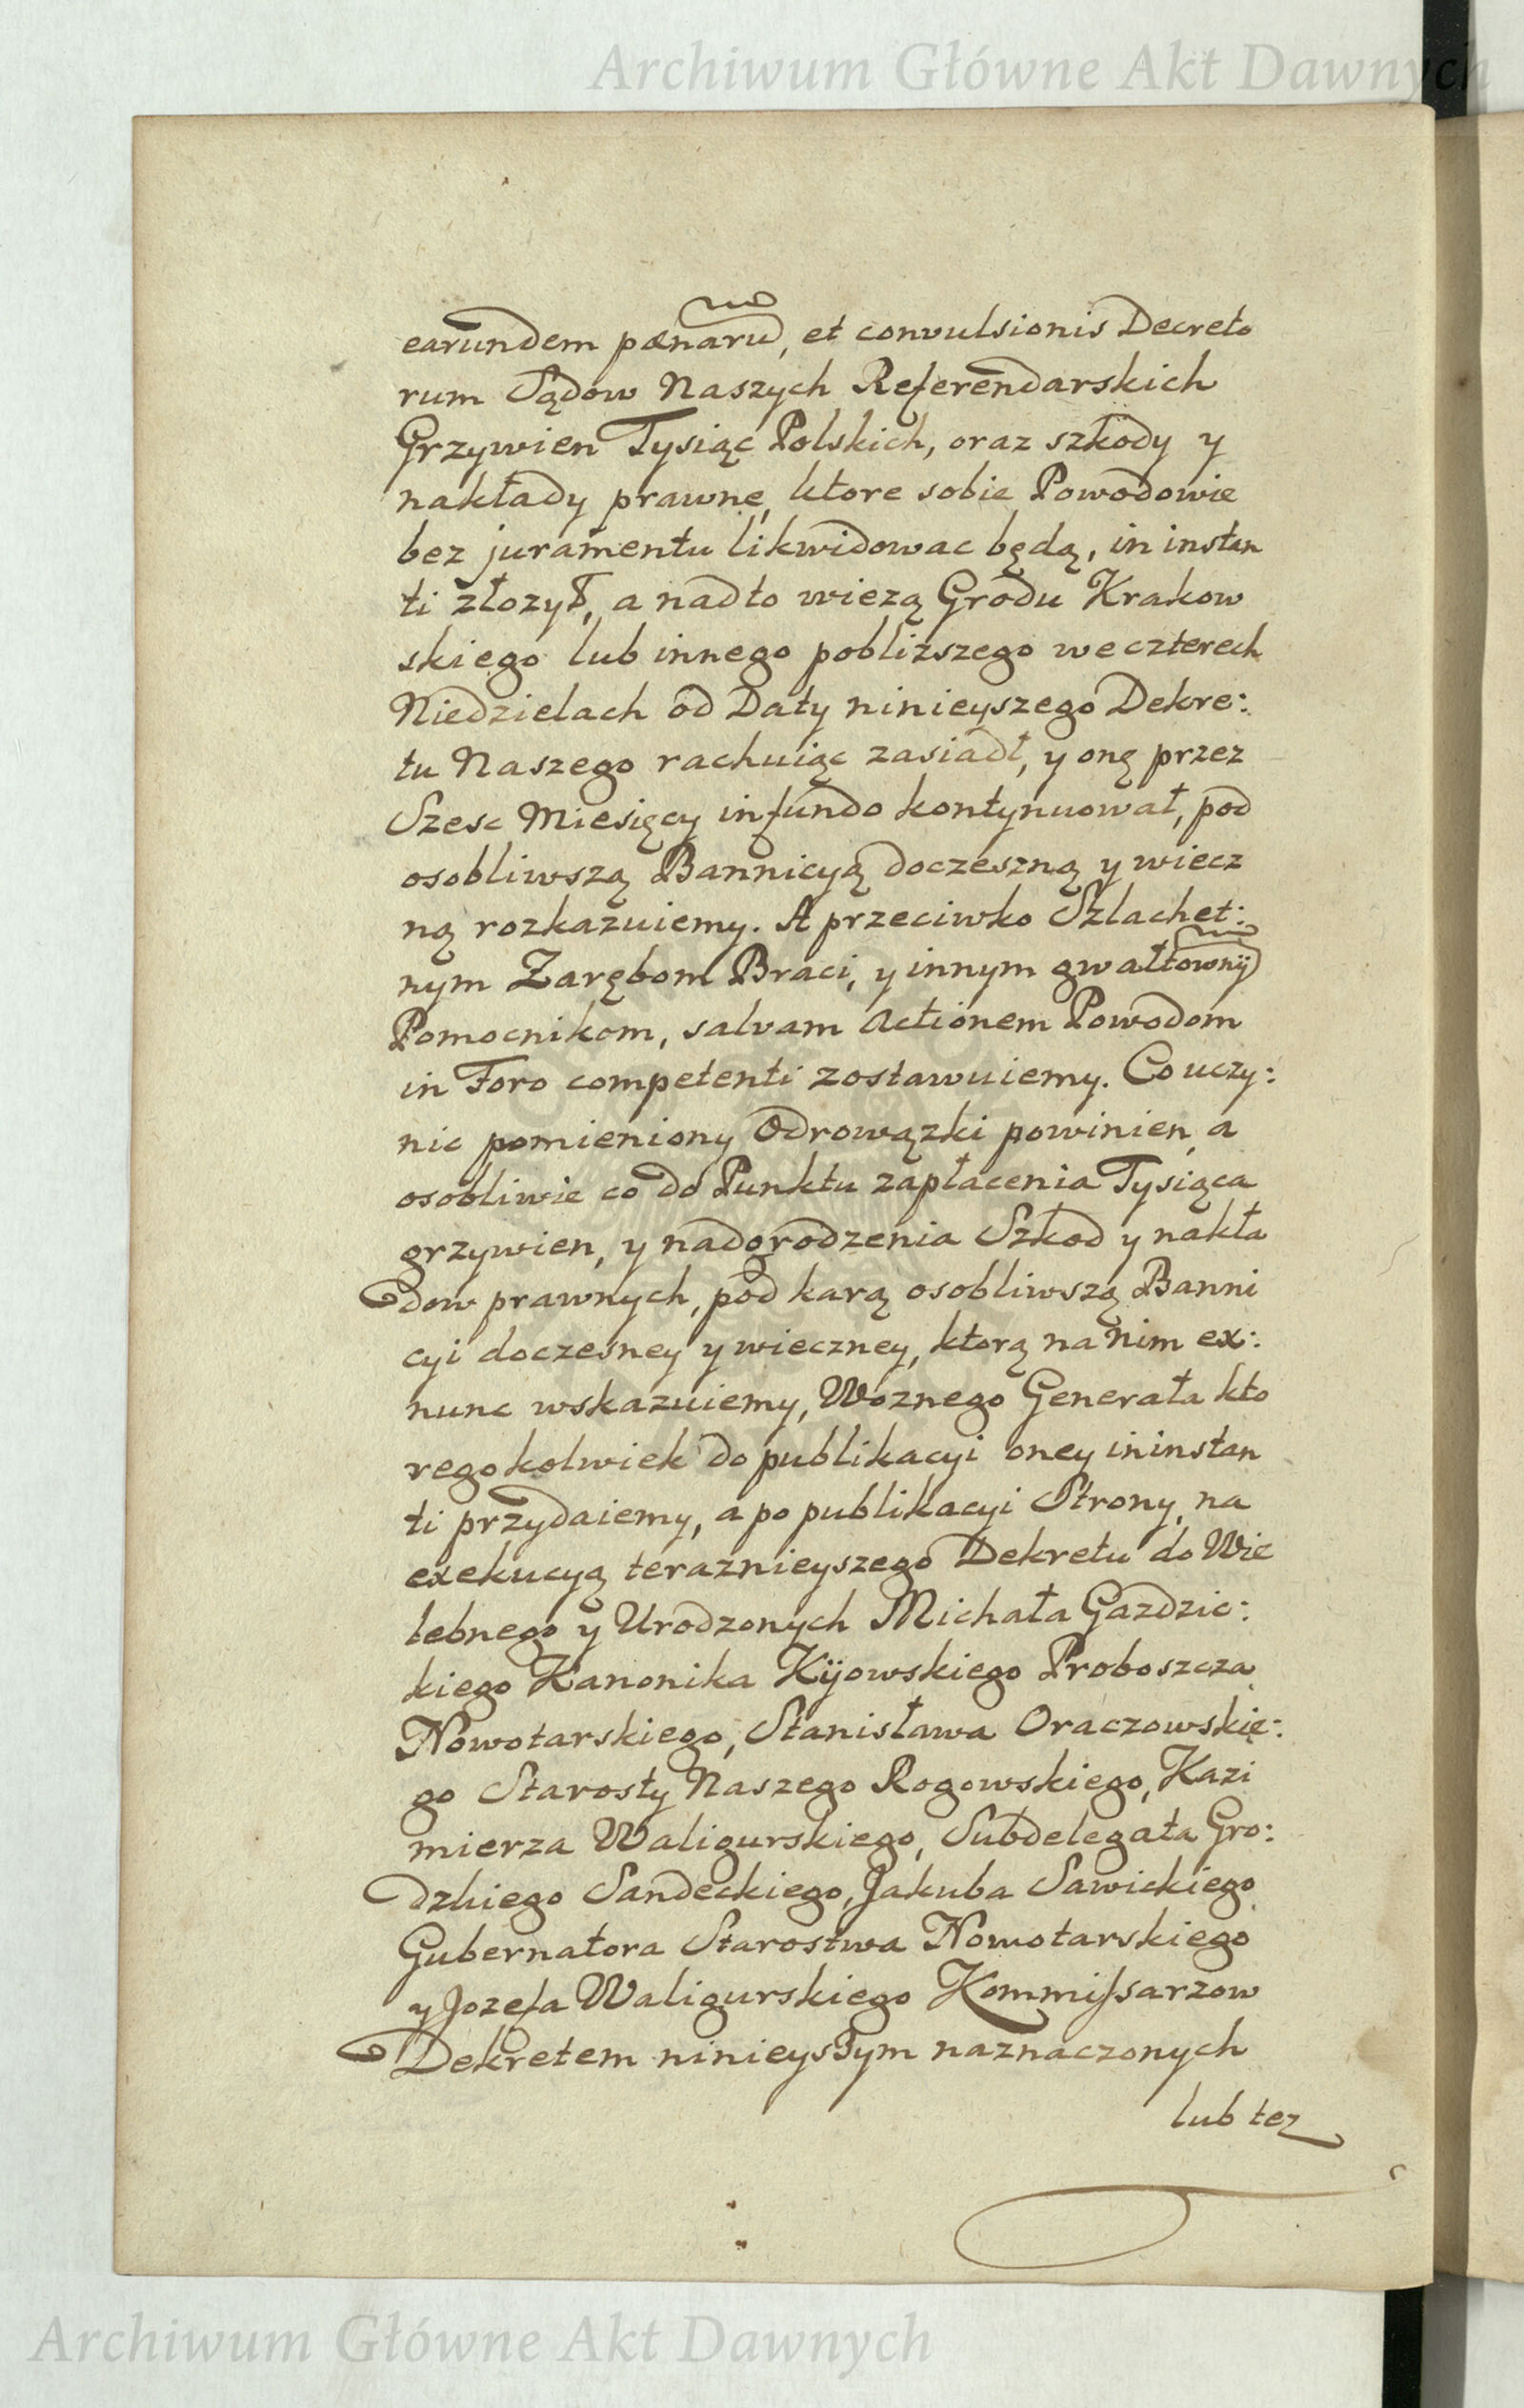 Archiwum Główne Akt Dawnych
earundem pænaru, et convulsionis Decreto
rum Sądow Naszych Referendarskich
Grzywien Tysiąc Polskich, oraz szkody y
nakłady prawne, ktore sobie Powodowie
bez juramentu likwidowac będą, in instan
ti złozył, a nadto wiezą Grodu Krakow
skiego lub innego pobliższego we czterech
Niedzielach od Daty ninieyszego Dekre:
tu Naszego rachuiąc zasiadł, y onę przez
Szesc Miesięcy in fundo kontynuował, pod
osobliwszą Bannicyą doczeszną y wiecz
ną rozkazuiemy. A przeciwko Szlachet:
nym Zarębom Braci, y innym gwałtownÿ
Pomocnikom, salvam Actionem Powodom
in Foro competenti zostawuiemy. Co uczy:
nic pomieniony Odrowązki powinien, a
osobliwie co do Punktu zapłacenia Tysiąca
grzywien, y nadgrodzenia Szkod y nakła
dow prawnych, pod karą osobliwszą Banni
cyi doczesney y wieczney, ktorą na nim ex:
nunc wskazuiemy, Woznego Generała kto
regokolwiek do publikacyi oney in instan
ti przydaiemy, a po publikacyi Strony, na
exekucyą teraznieyszego Dekretu do Wie
lebnego y Urodzonych Michała Gazdzic:
kiego Kanonika Kÿowskiego Proboszcza
Nowotarskiego, Stanisława Oraczowskie:
go Starosty Naszego Rogowskiego, Kazi
mierza Waligurskiego, Subdelegata Gro:
dzkiego Sandeckiego, Jakuba Sawickiego
Gubernatora Starostwa Nowotarskiego
y Jozefa Waligurskiego Kommissarzow
Dekretem ninieyszym naznaczonych
lub tez
Archiwum Główne Akt Dawnych